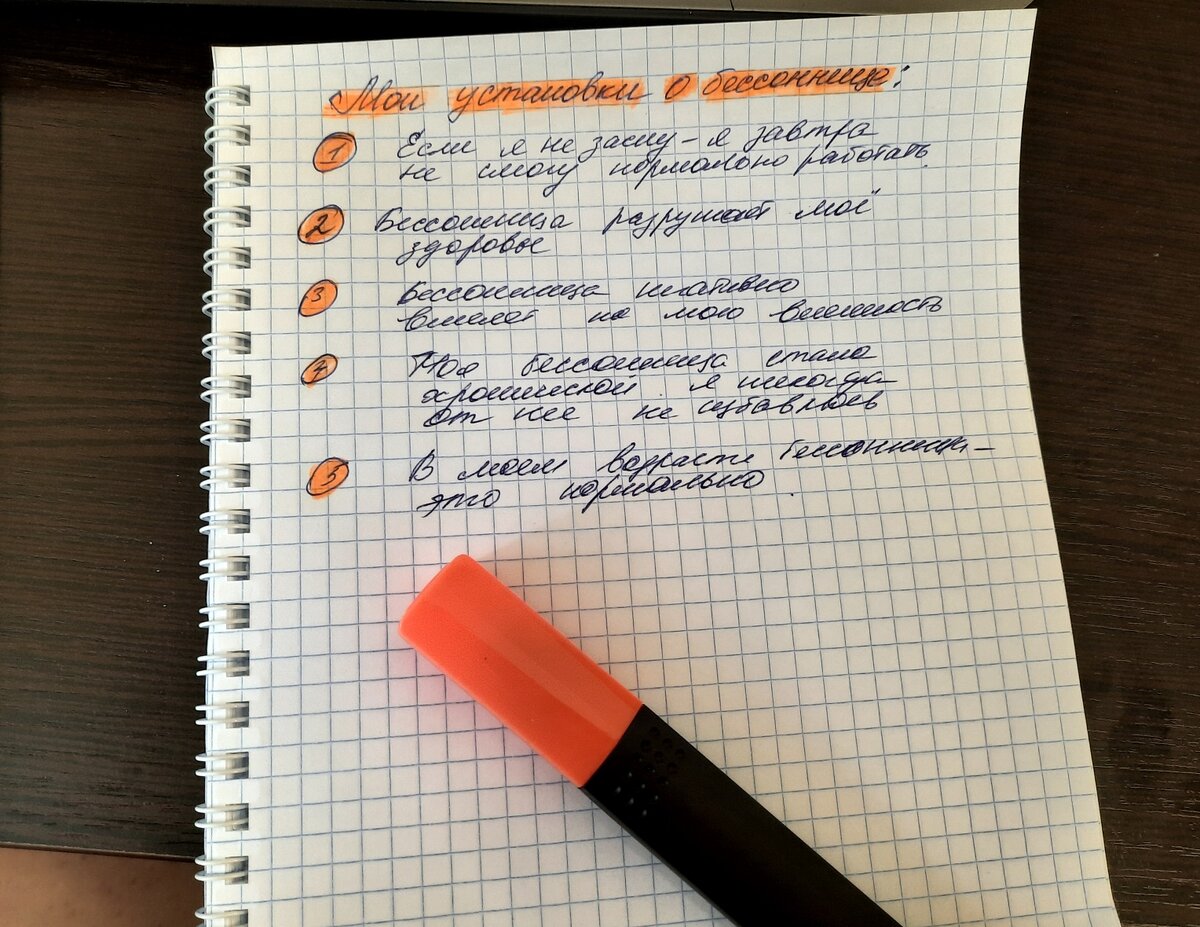 Мои установки о бессоннице:
1 Если я не засну - я завтра
не смогу нормально работать.
2 Бессонница разрушает моё
здоровье
3 Бессонница негативно
влияет на мою внешность
4 Моя бессонница стала
хронической я никогда
от нее не избавлюсь
5 В моем возрасте бессонница -
это нормально.